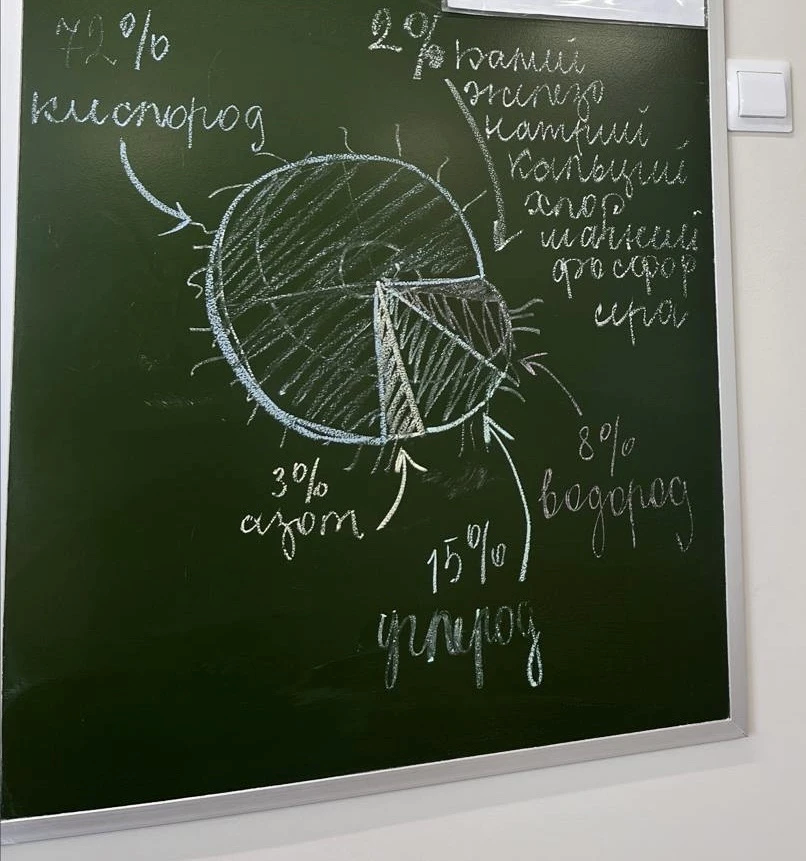 72%
кислород
2%
калий
железо
натрий
кальций
хлор
магний
фосфор
сера
8%
водород
3%
азот
15%
углерод